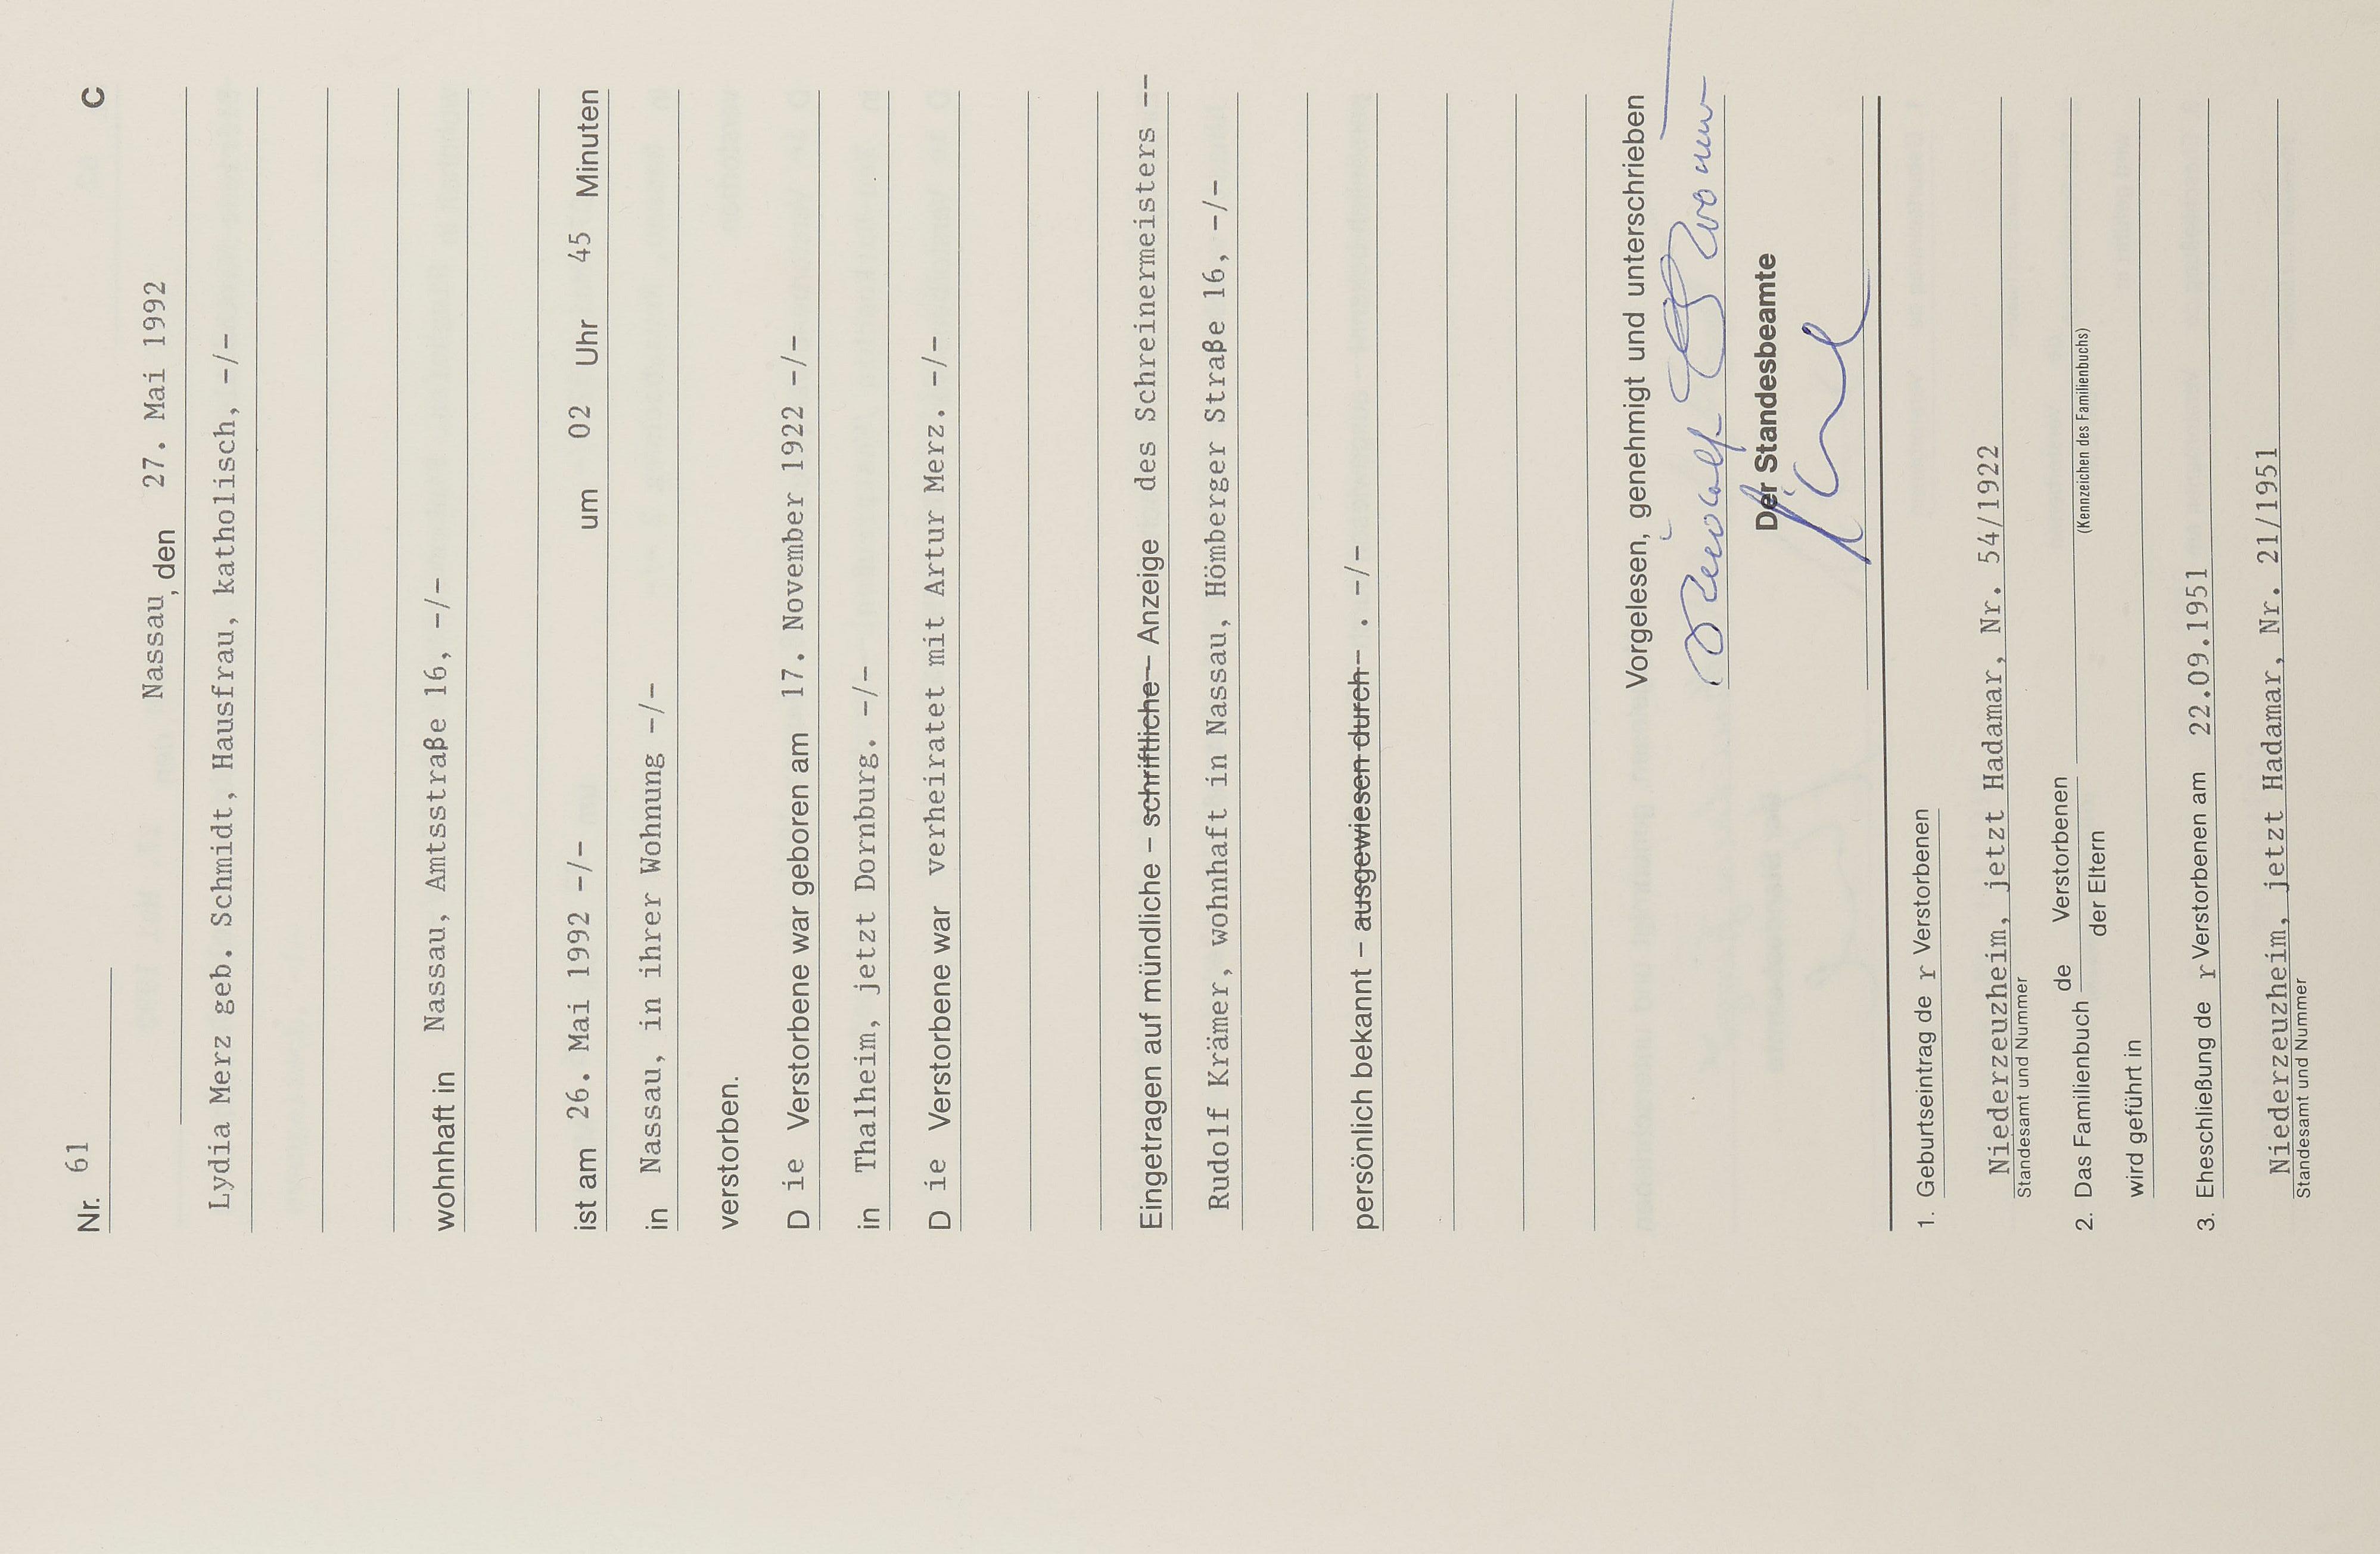 Nr. 61 C
Nassau, den 27. Mai 1992
Lydia Merz geb. Schmidt, Hausfrau, katholisch, -/-
wohnhaft in Nassau, Amtsstraße 16, -/-
ist am 26. Mai 1992 -/- um 02 Uhr 45 Minuten
in Nassau, in ihrer Wohnung -/-
verstorben.
D ie Verstorbene war geboren am 17. November 1922 -/-
in Thalheim, jetzt Dornburg. -/-
D ie Verstorbene war verheiratet mit Artur Merz. -/-
Eingetragen auf mündliche – schriftliche – Anzeige des Schreinermeisters --
Rudolf Krämer, wohnhaft in Nassau, Hömberger Straße 16, -/-
persönlich bekannt – ausgewiesen durch – . -/-
Vorgelesen, genehmigt und unterschrieben
Der Standesbeamte
1. Geburtseintrag de r Verstorbenen
Niederzeuzheim, jetzt Hadamar, Nr. 54/1922
Standesamt und Nummer
2. Das Familienbuch de Verstorbenen
der Eltern
(Kennzeichen des Familienbuchs)
wird geführt in
3. Eheschließung de r Verstorbenen am 22.09.1951
Niederzeuzheim, jetzt Hadamar, Nr. 21/1951
Standesamt und Nummer